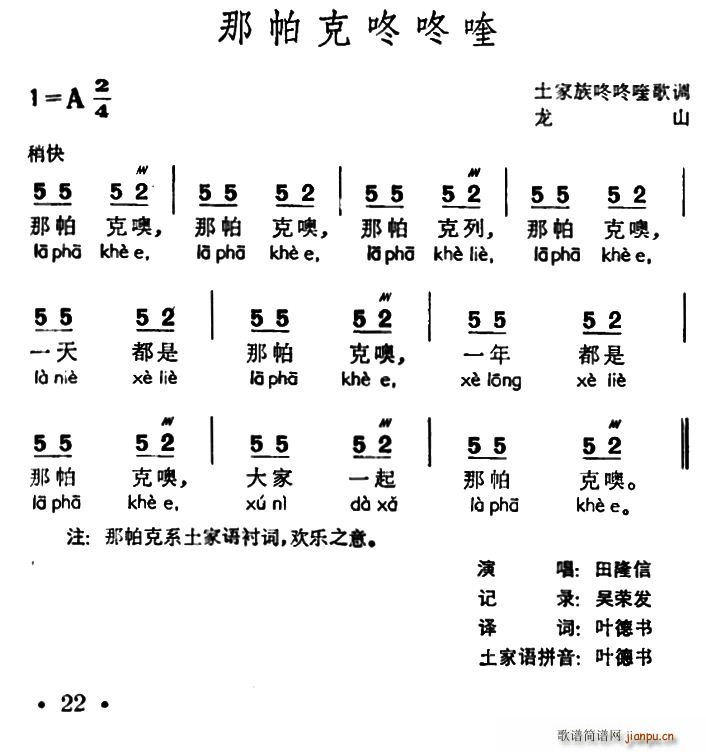 那帕克咚咚喹
1=A 2/4
土家族咚咚喹歌调
龙 山
稍快
5 5 5 2 | 5 5 5 2 | 5 5 5 2 | 5 5 5 2 |
那帕 克噢, 那帕 克噢, 那帕 克列, 那帕 克噢,
lā phā khè e, lā phā khè e, lā phā khè liè, lā phā khè e,
5 5 5 2 | 5 5 5 2 | 5 5 5 2 |
一天 都是 那帕 克噢, 一年 都是
là niè xè liè lā phā khè e, xè lōng xè liè
5 5 5 2 | 5 5 5 2 | 5 5 5 2 ‖
那帕 克噢, 大家 一起 那帕 克噢。
lā phā khè e, xú nì dà xǎ là phā khè e。
注: 那帕克系土家语衬词, 欢乐之意。
演 唱: 田隆信
记 录: 吴荣发
译 词: 叶德书
土家语拼音: 叶德书
• 22 •
歌谱简谱网 jianpu.cn